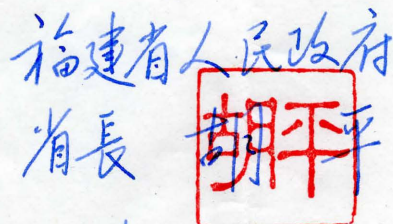 福建省人民政府
省長 胡平
胡平